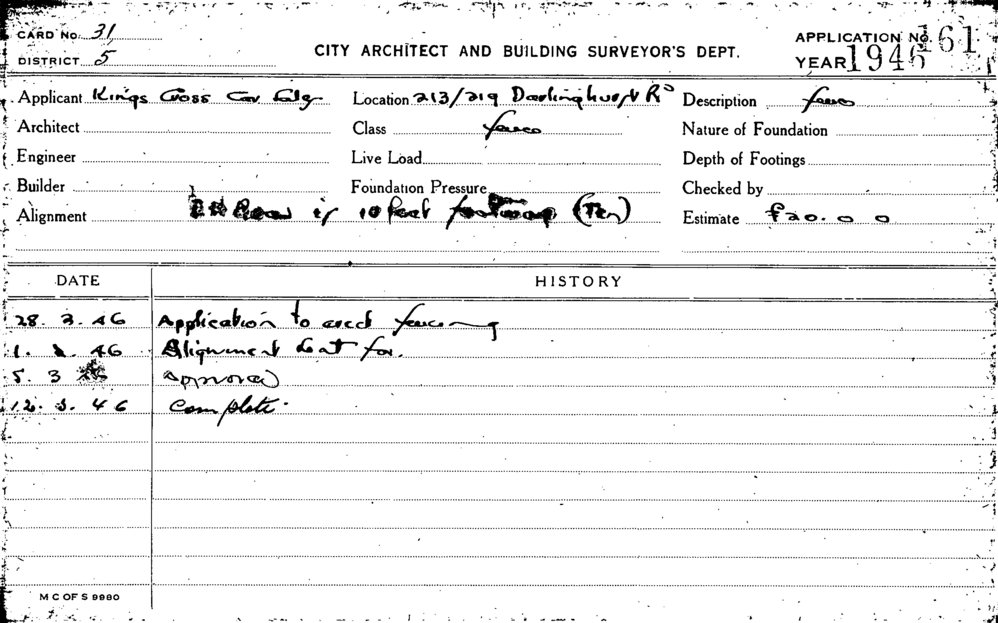 CARD No. 31
DISTRICT 5
CITY ARCHITECT AND BUILDING SURVEYOR'S DEPT.
APPLICATION No. 161
YEAR 1946
Applicant Kings Cross Car
Location 213/219 Darlinghurst Rd
Description fence
Architect
Class fence
Nature of Foundation
Engineer
Live Load
Depth of Footings
Builder
Foundation Pressure
Checked by
Alignment is 10 feet (Ten)
Estimate £20. 0 0
DATE HISTORY
28. 2. 46 Application to erect fencing
1. 46 Alignment for.
5. 3 approved
12. 3. 46 Complete.
M C OF S 9980